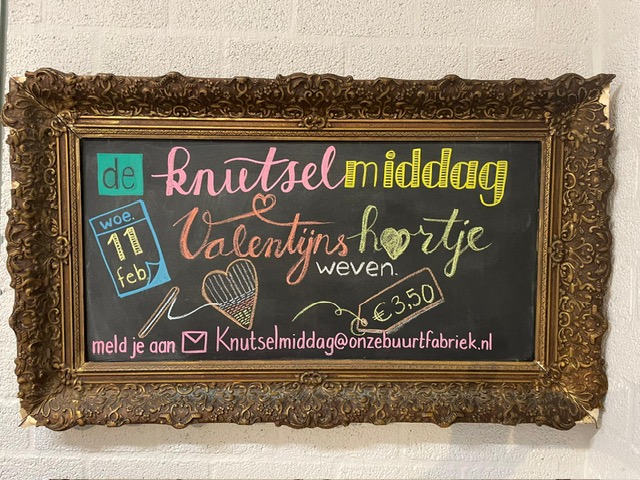 de knutselmiddag
woe.
11
feb
Valentijns hartje
weven.
€3,50
meld je aan Knutselmiddag@onzebuurtfabriek.nl